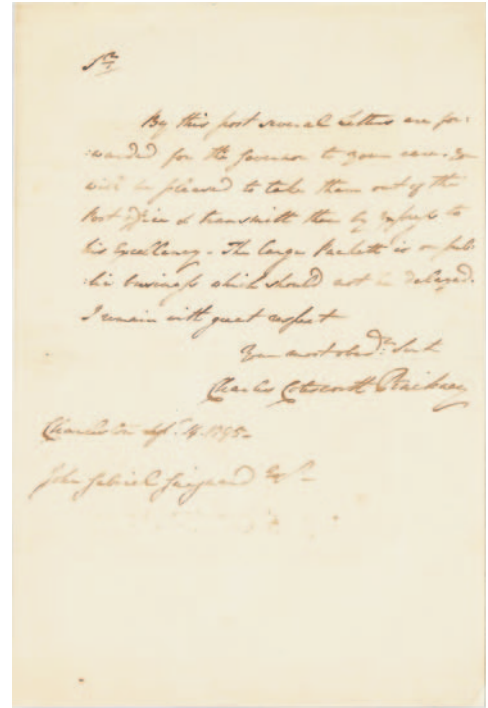 Sr
By this post several Letters are for:
:warded for the Governor to your care. You
will be pleased to take them out of the
Post office & transmitt them by express to
his Excellency. The large Packett is on pub:
:lic business which should not be delayed.
I remain with great respect
Your most obedt: Servt
Charles Cotesworth Pinckney
Charleston Sepr. 14. 1795.
John Gabriel Guignard Esqr